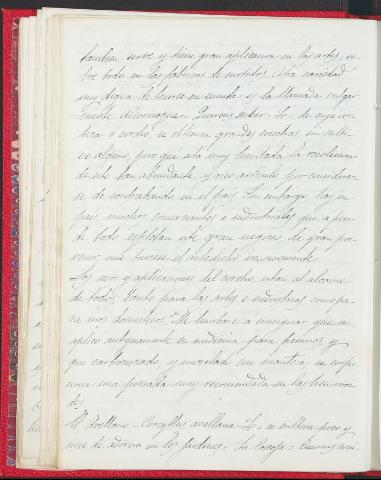 tambien sirve y tiene gran aplicacion en las artes, so-
bre todo en las fabricas de curtidos. Otra variedad
muy digna de tenerse en cuenta es la llamada vulgar-
mente alcornoque = Quercus suber - L = de cuya cor-
teza ó corcho se obtienen grandes cosechas, sin culti-
vo alguno, pero que está muy limitada la recoleccion
de este tan abundante y rico articulo por considerar-
se de contrabando en el pais. Sin embargo, hay en
pais, muchos comerciantes é industriales que a pesar
de todo esplotan este gran negocio de gran por-
venir, sin tuviese el antedicho inconveniente.
Los usos y aplicaciones del corcho, estan al alcance
de todos, tanto para las artes é industrias como pa-
ra usos domesticos. Me limitaré a consignar que se
aplicó antiguamente en medicina para y
que carbonizado, y mezclado con manteca, se compo-
nia una pomada muy recomendada en las hemorroi-
des.
El avellano = Corylus avellana - L = se cultiva poco y
sirve de adorno en los jardines. La = Quercus